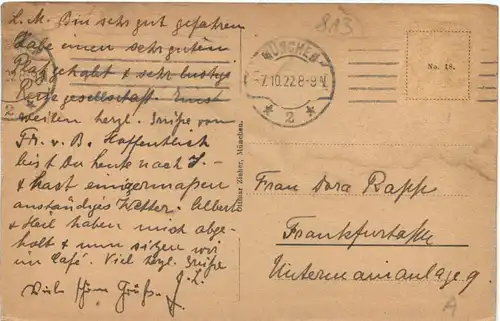 L. M. Bin sehr gut gefahren
habe einen sehr guten
Platz gehabt & sehr lustige
Reisegesellschaft. Einst
weilen herzl. Grüße von
Fr. v. B. Hoffentlich
bist Du heute nach
& hast einigermaßen
anständiges Wetter. Albert
& Heil haben mich abge-
holt & nun sitzen wir
im Café. Viel herzl. Grüße
Viele schöne Grüße
Ottmar Zieher, München.
813
MÜNCHEN
-7.10.22 8-9 V.
* 2 *
2
No. 18.
Frau Dora Rapp
Frankfurt
Untermainanlage 9.
A